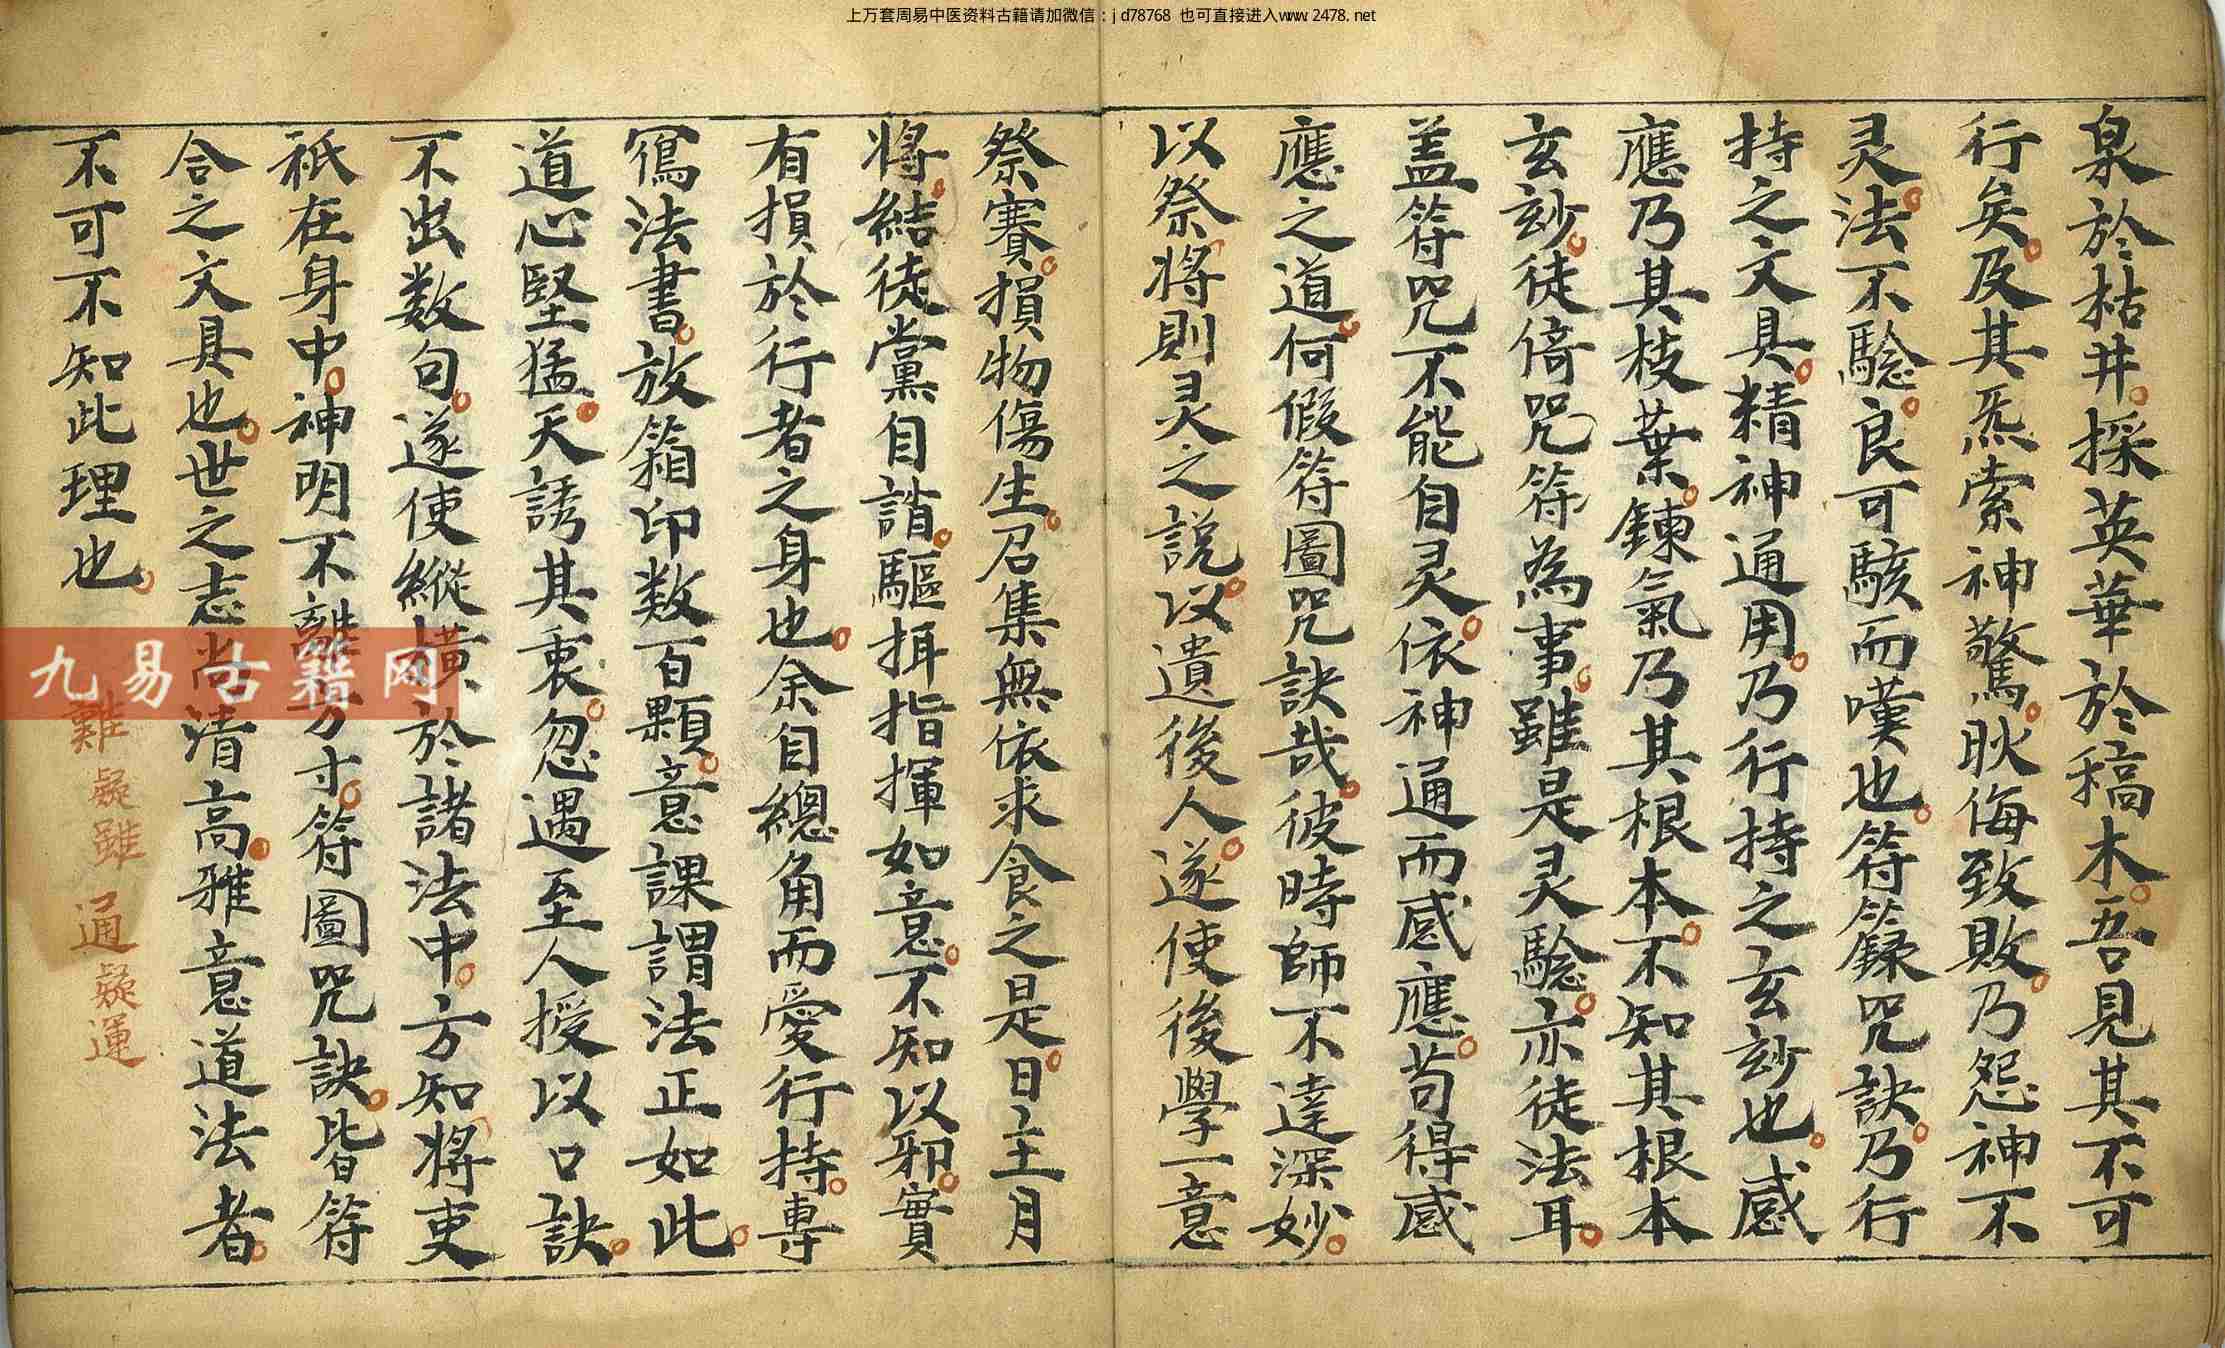 上万套周易中医资料古籍请加微信：jd78768 也可直接进入www.2478.net
泉於枯井採英華於稿木吾見其不可
行矣及其炁索神驚耿侮致敗乃怨神不
灵法不驗良可駭而嘆也符籙咒訣乃行
持之文具精神通用乃行持之玄玅也感
應乃其枝葉鍊氣乃其根本不知其根本
玄玅徒倚咒符為事雖是灵驗亦徒法耳
盖符咒不能自灵依神通而感應茍得感
應之道何假符圖咒訣哉彼時師不達深妙
以祭將則灵之説以遺後人遂使後學一意
祭賽損物傷生召集無依求食之是日主月
將結徒黨自諧驅揖指揮如意不知以邪實
有損於行者之身也余自總角而愛行持專
寫法書放箱印数百顆意課謂法正如此
道心堅猛天誘其衷忽遇至人授以口訣
不出数句遂使縱橫於諸法中方知將吏
祇在身中神明不離方寸符圖咒訣皆符
合之文具也世之志尚清高雅意道法者
不可不知此理也
難疑雖通疑運
九易古籍网